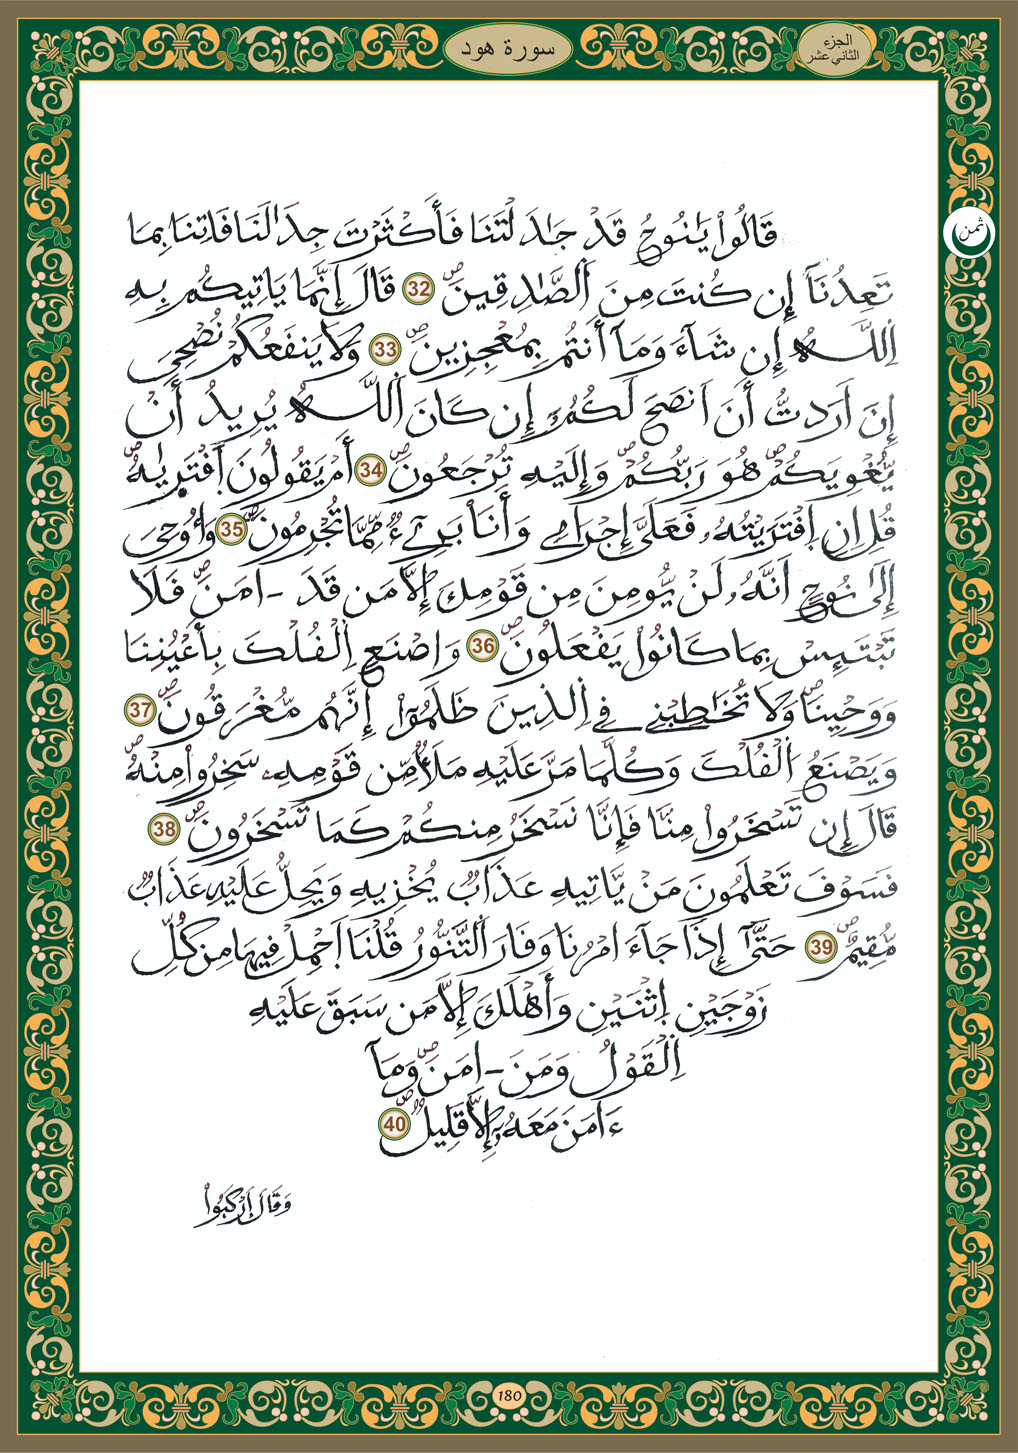 الجزء
الثاني عشر
سورة هود
ثمن
قَالُواْ يَٰنُوحُ قَدْ جَٰدَلْتَنَا فَأَكْثَرْتَ جِدَٰلَنَا فَاتِنَا بِمَا
تَعِدُنَآ إِن كُنتَ مِنَ اَ۬لصَّٰدِقِينَۖ 32 قَالَ إِنَّمَا يَاتِيكُم بِهِ
اِ۬للَّهُ إِن شَآءَ وَمَآ أَنتُم بِمُعْجِزِينَۖ 33 وَلَا يَنفَعُكُمْ نُصْحِيَ
إِنَ اَرَدتُّ أَنَ اَنصَحَ لَكُمُۥٓ إِن كَانَ اَ۬للَّهُ يُرِيدُ أَنْ
يُّغْوِيَكُمْۖ هُوَ رَبُّكُمْۖ وَإِلَيْهِ تُرْجَعُونَۖ 34 أَمْ يَقُولُونَ اَ۪فْتَرَيٰهُۖ
قُلِ اِنِ اِ۪فْتَرَيْتُهُۥ فَعَلَيَّ إِجْرَامِے وَأَنَا بَرِےٓءٞ مِّمَّا تُجْرِمُونَۖ 35 وَأُوحِيَ
إِلَيٰ نُوحٍ اَنَّهُۥ لَنْ يُّومِنَ مِن قَوْمِكَ إِلَّا مَن قَدَ ـ اٰمَنَۖ فَلَا
تَبْتَئِسْ بِمَا كَانُواْ يَفْعَلُونَۖ 36 وَاصْنَعِ اِ۬لْفُلْكَ بِأَعْيُنِنَا
وَوَحْيِنَاۖ وَلَا تُخَٰطِبْنِے فِے اِ۬لذِينَ ظَلَمُوٓاْ إِنَّهُم مُّغْرَقُونَۖ 37
وَيَصْنَعُ اُ۬لْفُلْكَ وَكُلَّمَا مَرَّ عَلَيْهِ مَلَأٞ مِّن قَوْمِهِۦ سَخِرُواْ مِنْهُۖ
قَالَ إِن تَسْخَرُواْ مِنَّا فَإِنَّا نَسْخَرُ مِنكُمْ كَمَا تَسْخَرُونَۖ 38
فَسَوْفَ تَعْلَمُونَ مَنْ يَّاتِيهِ عَذَابٞ يُخْزِيهِ وَيَحِلُّ عَلَيْهِ عَذَابٞ
مُّقِيمٌۖ 39 حَتَّيٰٓ إِذَا جَآءَ امْرُنَا وَفَارَ اَ۬لتَّنُّورُ قُلْنَا اَ۪حْمِلْ فِيهَا مِن كُلِّ
زَوْجَيْنِ اِ۪ثْنَيْنِ وَأَهْلَكَ إِلَّا مَن سَبَقَ عَلَيْهِ
اِ۬لْقَوْلُ وَمَنَ ـ اٰمَنَۖ وَمَآ
ءَامَنَ مَعَهُۥٓ إِلَّا قَلِيلٞۖ 40
وَقَالَ اَ۪رْكَبُواْ
180